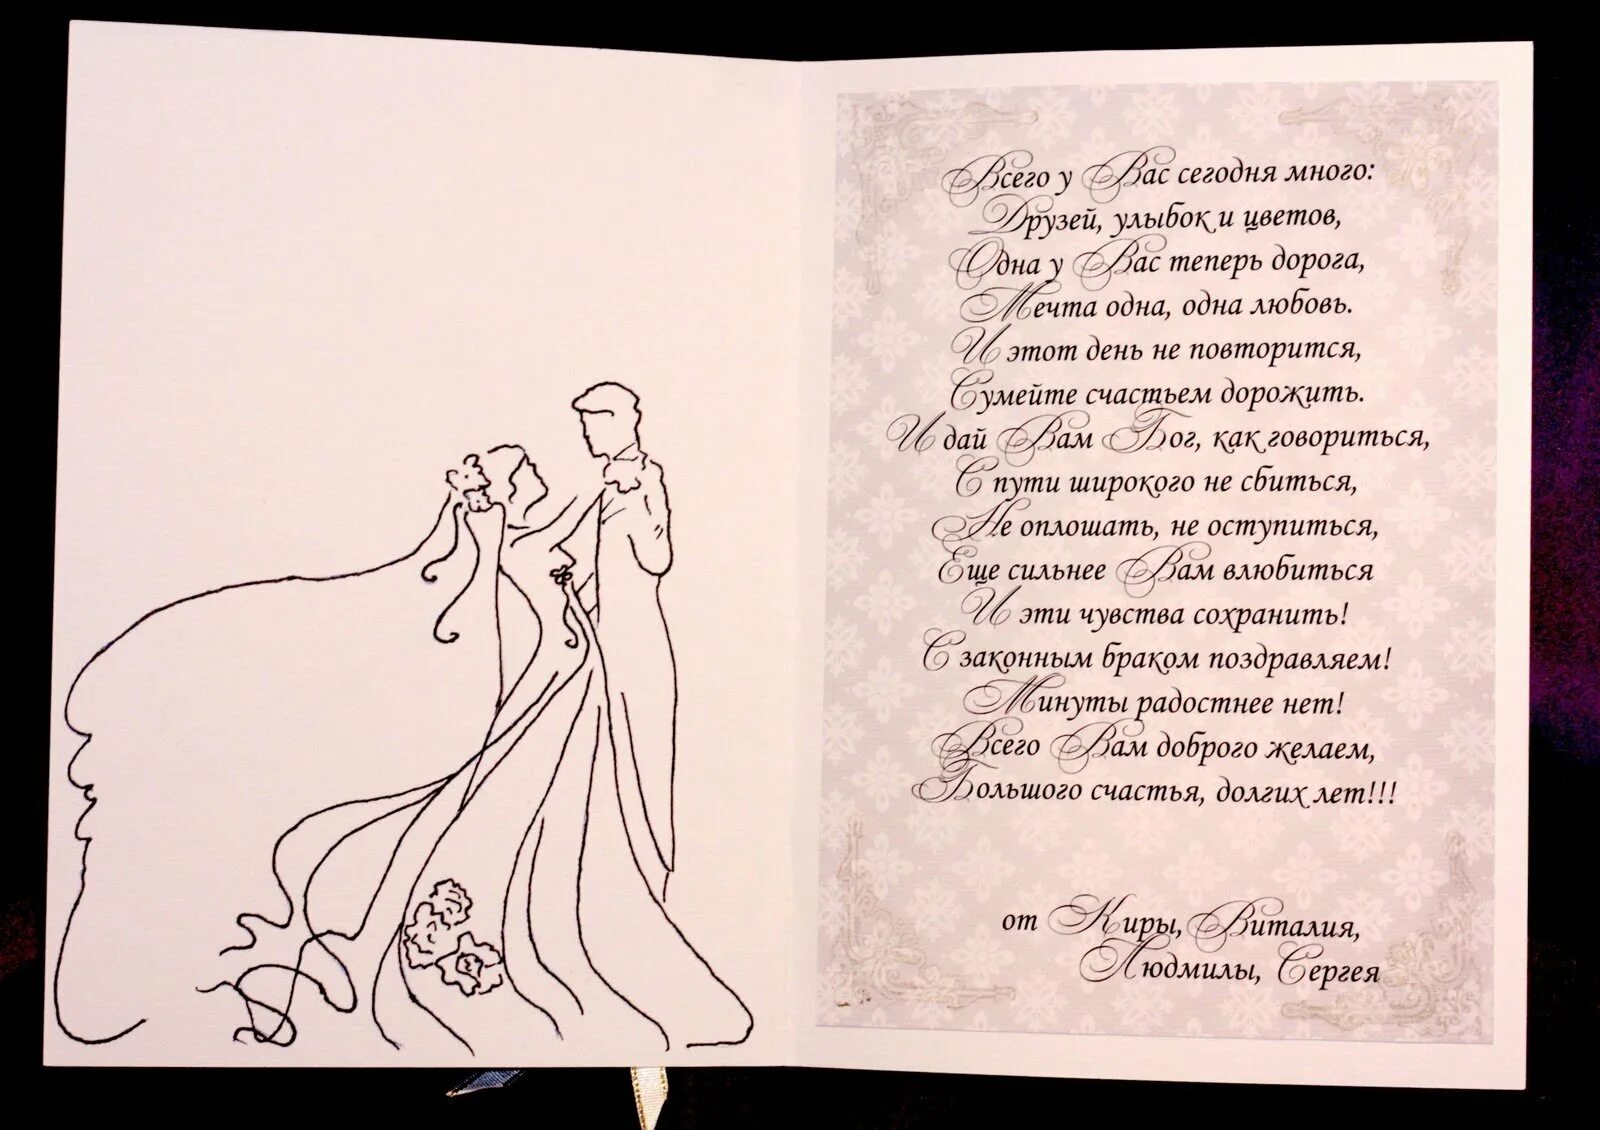 Всего у Вас сегодня много:
Друзей, улыбок и цветов,
Одна у Вас теперь дорога,
Мечта одна, одна любовь.
И этот день не повторится,
Сумейте счастьем дорожить.
И дай Вам Бог, как говориться,
С пути широкого не сбиться,
Не оплошать, не оступиться,
Еще сильнее Вам влюбиться
И эти чувства сохранить!
С законным браком поздравляем!
Минуты радостнее нет!
Всего Вам доброго желаем,
Большого счастья, долгих лет!!!
от Киры, Виталия,
Людмилы, Сергея